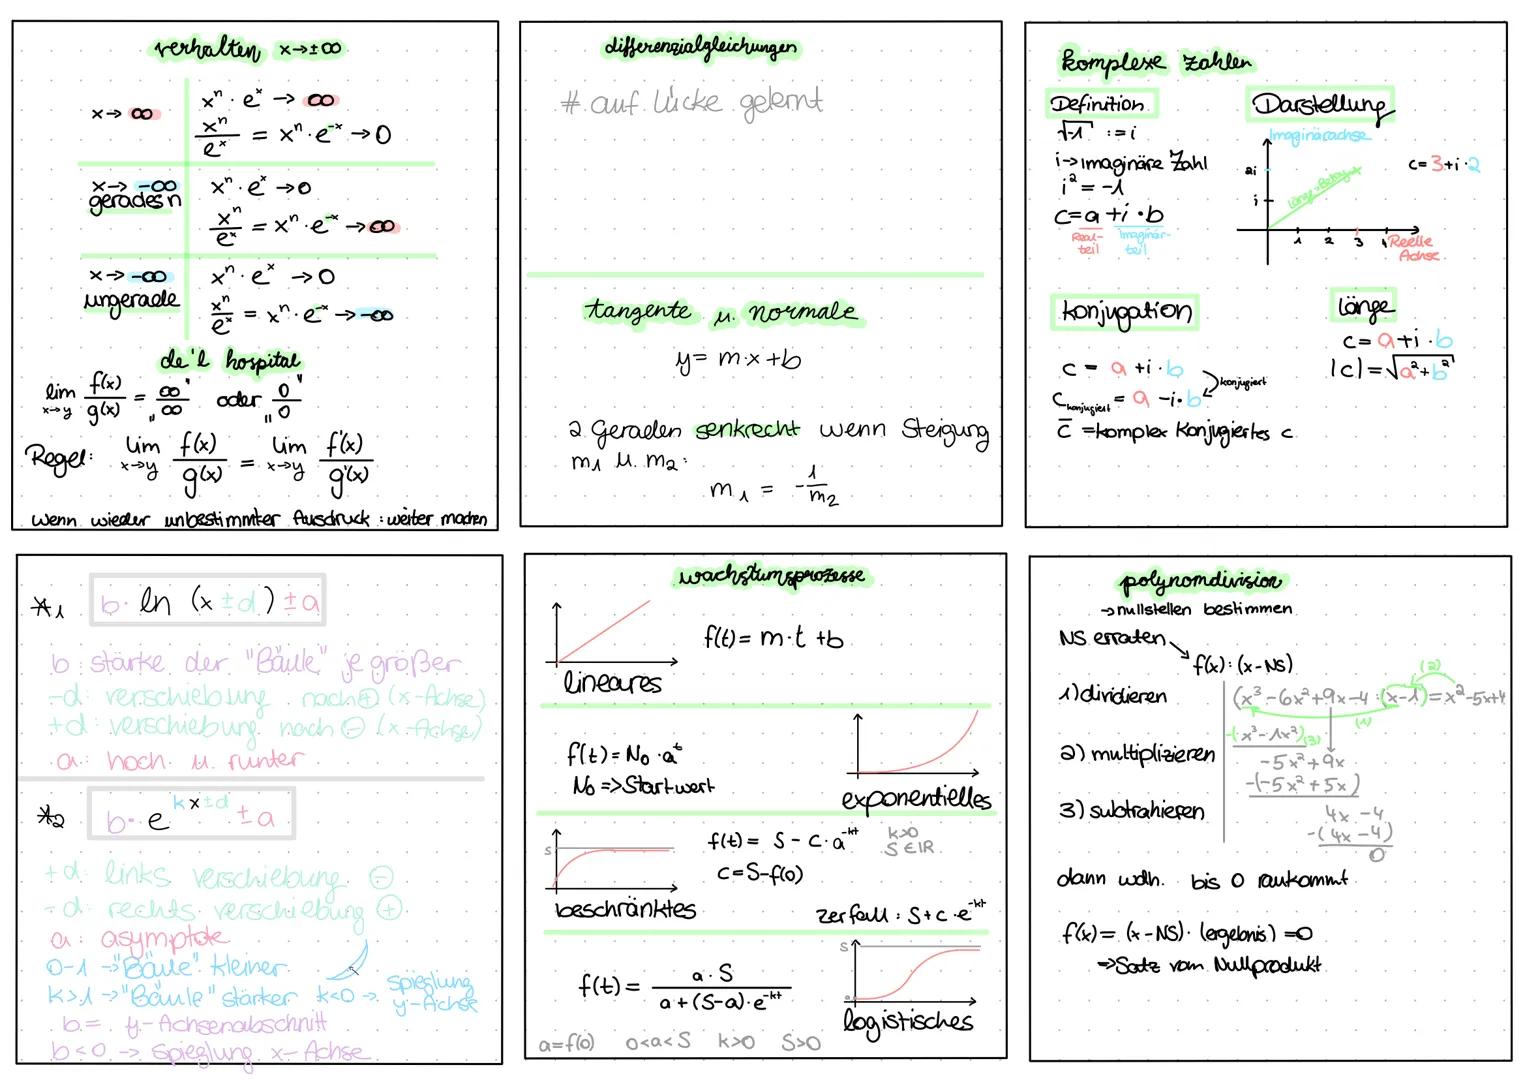 verhalten x→±∞
x→ ∞
xⁿ · eˣ → ∞
xⁿ/eˣ = xⁿ · e⁻ˣ → 0
x→ -∞
gerades n
xⁿ · eˣ → 0
xⁿ/eˣ = xⁿ · e⁻ˣ → ∞
x→ -∞
ungerade
xⁿ · eˣ → 0
xⁿ/eˣ = xⁿ · e⁻ˣ → -∞
de'l hospital
lim x→y f(x)/g(x) = „∞/∞" oder „0/0"
Regel: lim x→y f(x)/g(x) = lim x→y f'(x)/g'(x)
wenn wieder unbestimmter Ausdruck : weiter machen
differenzialgleichungen
# auf Lücke gelernt
tangente u. normale
y = m·x + b
2 Geraden senkrecht wenn Steigung
m₁ u. m₂:
m₁ = -1/m₂
komplexe Zahlen
Definition
√-1 := i
i → imaginäre Zahl
i² = -1
c = a + i · b
Real-
teil
Imaginär-
teil
Darstellung
Imaginärachse
2i
i
Länge = Betrag
1 2 3 4
Reelle
Achse
c = 3 + i · 2
Konjugation
c = a + i · b
konjugiert
c konjugiert = a - i · b
c̄ = komplex Konjugiertes c
Länge
c = a + i · b
|c| = √a² + b²
*1 b · ln (x ± d) ± a
b : stärke der "Bäule" je größer
-d : verschiebung nach ⊕ (x-Achse)
+d : verschiebung nach ⊖ (x-Achse)
a : hoch u. runter
*2 b · e^kx±d ± a
+d : links verschiebung ⊖
-d : rechts verschiebung ⊕
a : asymptote
0-1 → "Bäule" kleiner
k>1 → "Bäule" stärker k<0 → Spieglung
y-Achse
b = y-Achsenabschnitt
b<0 → Spieglung x-Achse
wachstumsprozesse
f(t) = m·t + b
lineares
f(t) = N₀ · aᵗ
N₀ => Startwert
exponentielles
S
f(t) = S - c · a⁻ᵏᵗ k>0
S ∈ IR
c = S - f(0)
beschränktes
zerfall : S + c · e⁻ᵏᵗ
f(t) = a · S / a + (S-a) · e⁻ᵏᵗ
S
a
logistisches
a = f(0) 0<a<S k>0 S>0
polynomdivision
→ nullstellen bestimmen
NS erraten
f(x) : (x-NS)
1) dividieren
(x³ - 6x² + 9x - 4 : (x-1) = x² - 5x + 4
(2)
(1)
-(x³ - 1x²) (3)
2) multiplizieren
-5x² + 9x
-(-5x² + 5x)
3) subtrahieren
4x - 4
-(4x - 4)
0
dann wdh. bis 0 rauskommt
f(x) = (x-NS) · (ergebnis) = 0
=> Satz vom Nullprodukt